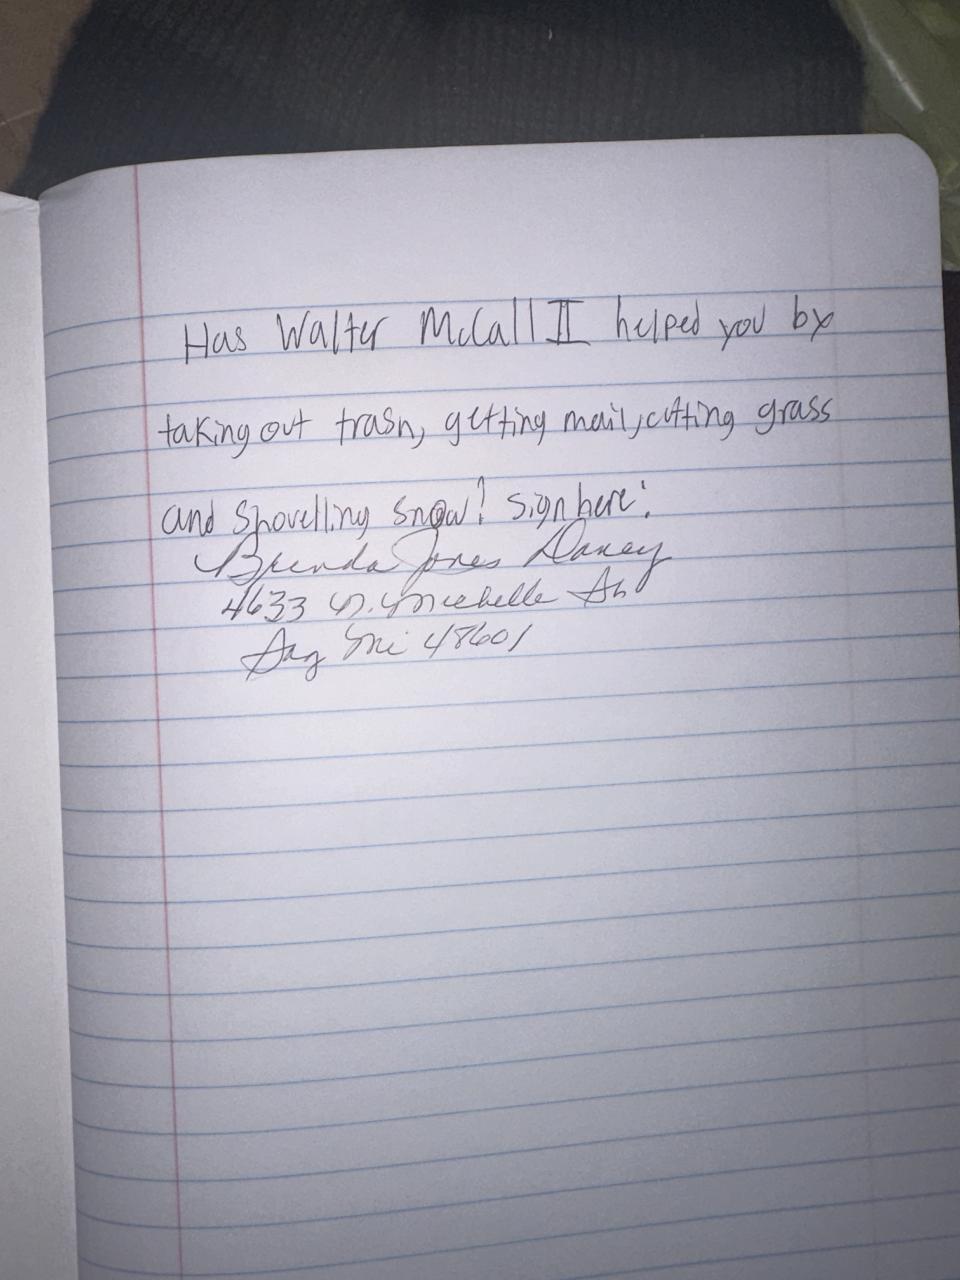 Has Walter McCall II helped you by
taking out trash, getting mail, cutting grass
and shovelling snow? sign here:
Brenda Jones Dancy
4633 N. Michelle
Sag Mi 48601